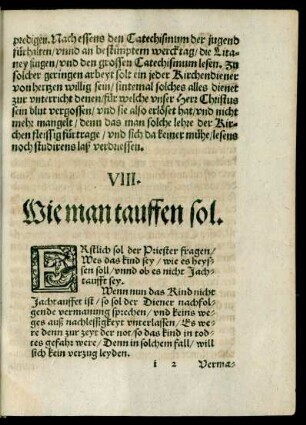 predigen. Nach essens den Catechismum der jugend
fürhalten/ vnnd an bestimptem wercktag/ die Lita-
ney singen/ vnd den grossen Catechismum lesen. Zu
solcher geringen arbeyt solt ein jeder Kirchendiener
von hertzen willig sein/ sintemal solches alles dienet
zur vnterricht denen/ für welche vnser Herr Christus
sein blut vergossen/ vnd sie also erlöset hat/ vnd nicht
mehr mangelt/ denn das man solche lehre der Kir-
chen fleissig fürtrage/ vnd sich da keiner mühe/ lesens
noch studirens laß verdriessen.
VIII.
Wie man tauffen sol.
ERstlich sol der Priester fragen/
Wes das kind sey/ wie es heys-
sen soll/ vnnd ob es nicht Jach-
taufft sey.
Wenn nun das Kind nicht
Jachtauffet ist/ so sol der Diener nachfol-
gende vermanung sprechen/ vnd keins we-
ges auß nachlessigkeyt vnterlassen/ Es we-
re denn zur zeyt der not/ so das kind in tod-
tes gefahr were/ Denn in solchem fall/ will
sich kein verzug leyden.
i 2 Verma-